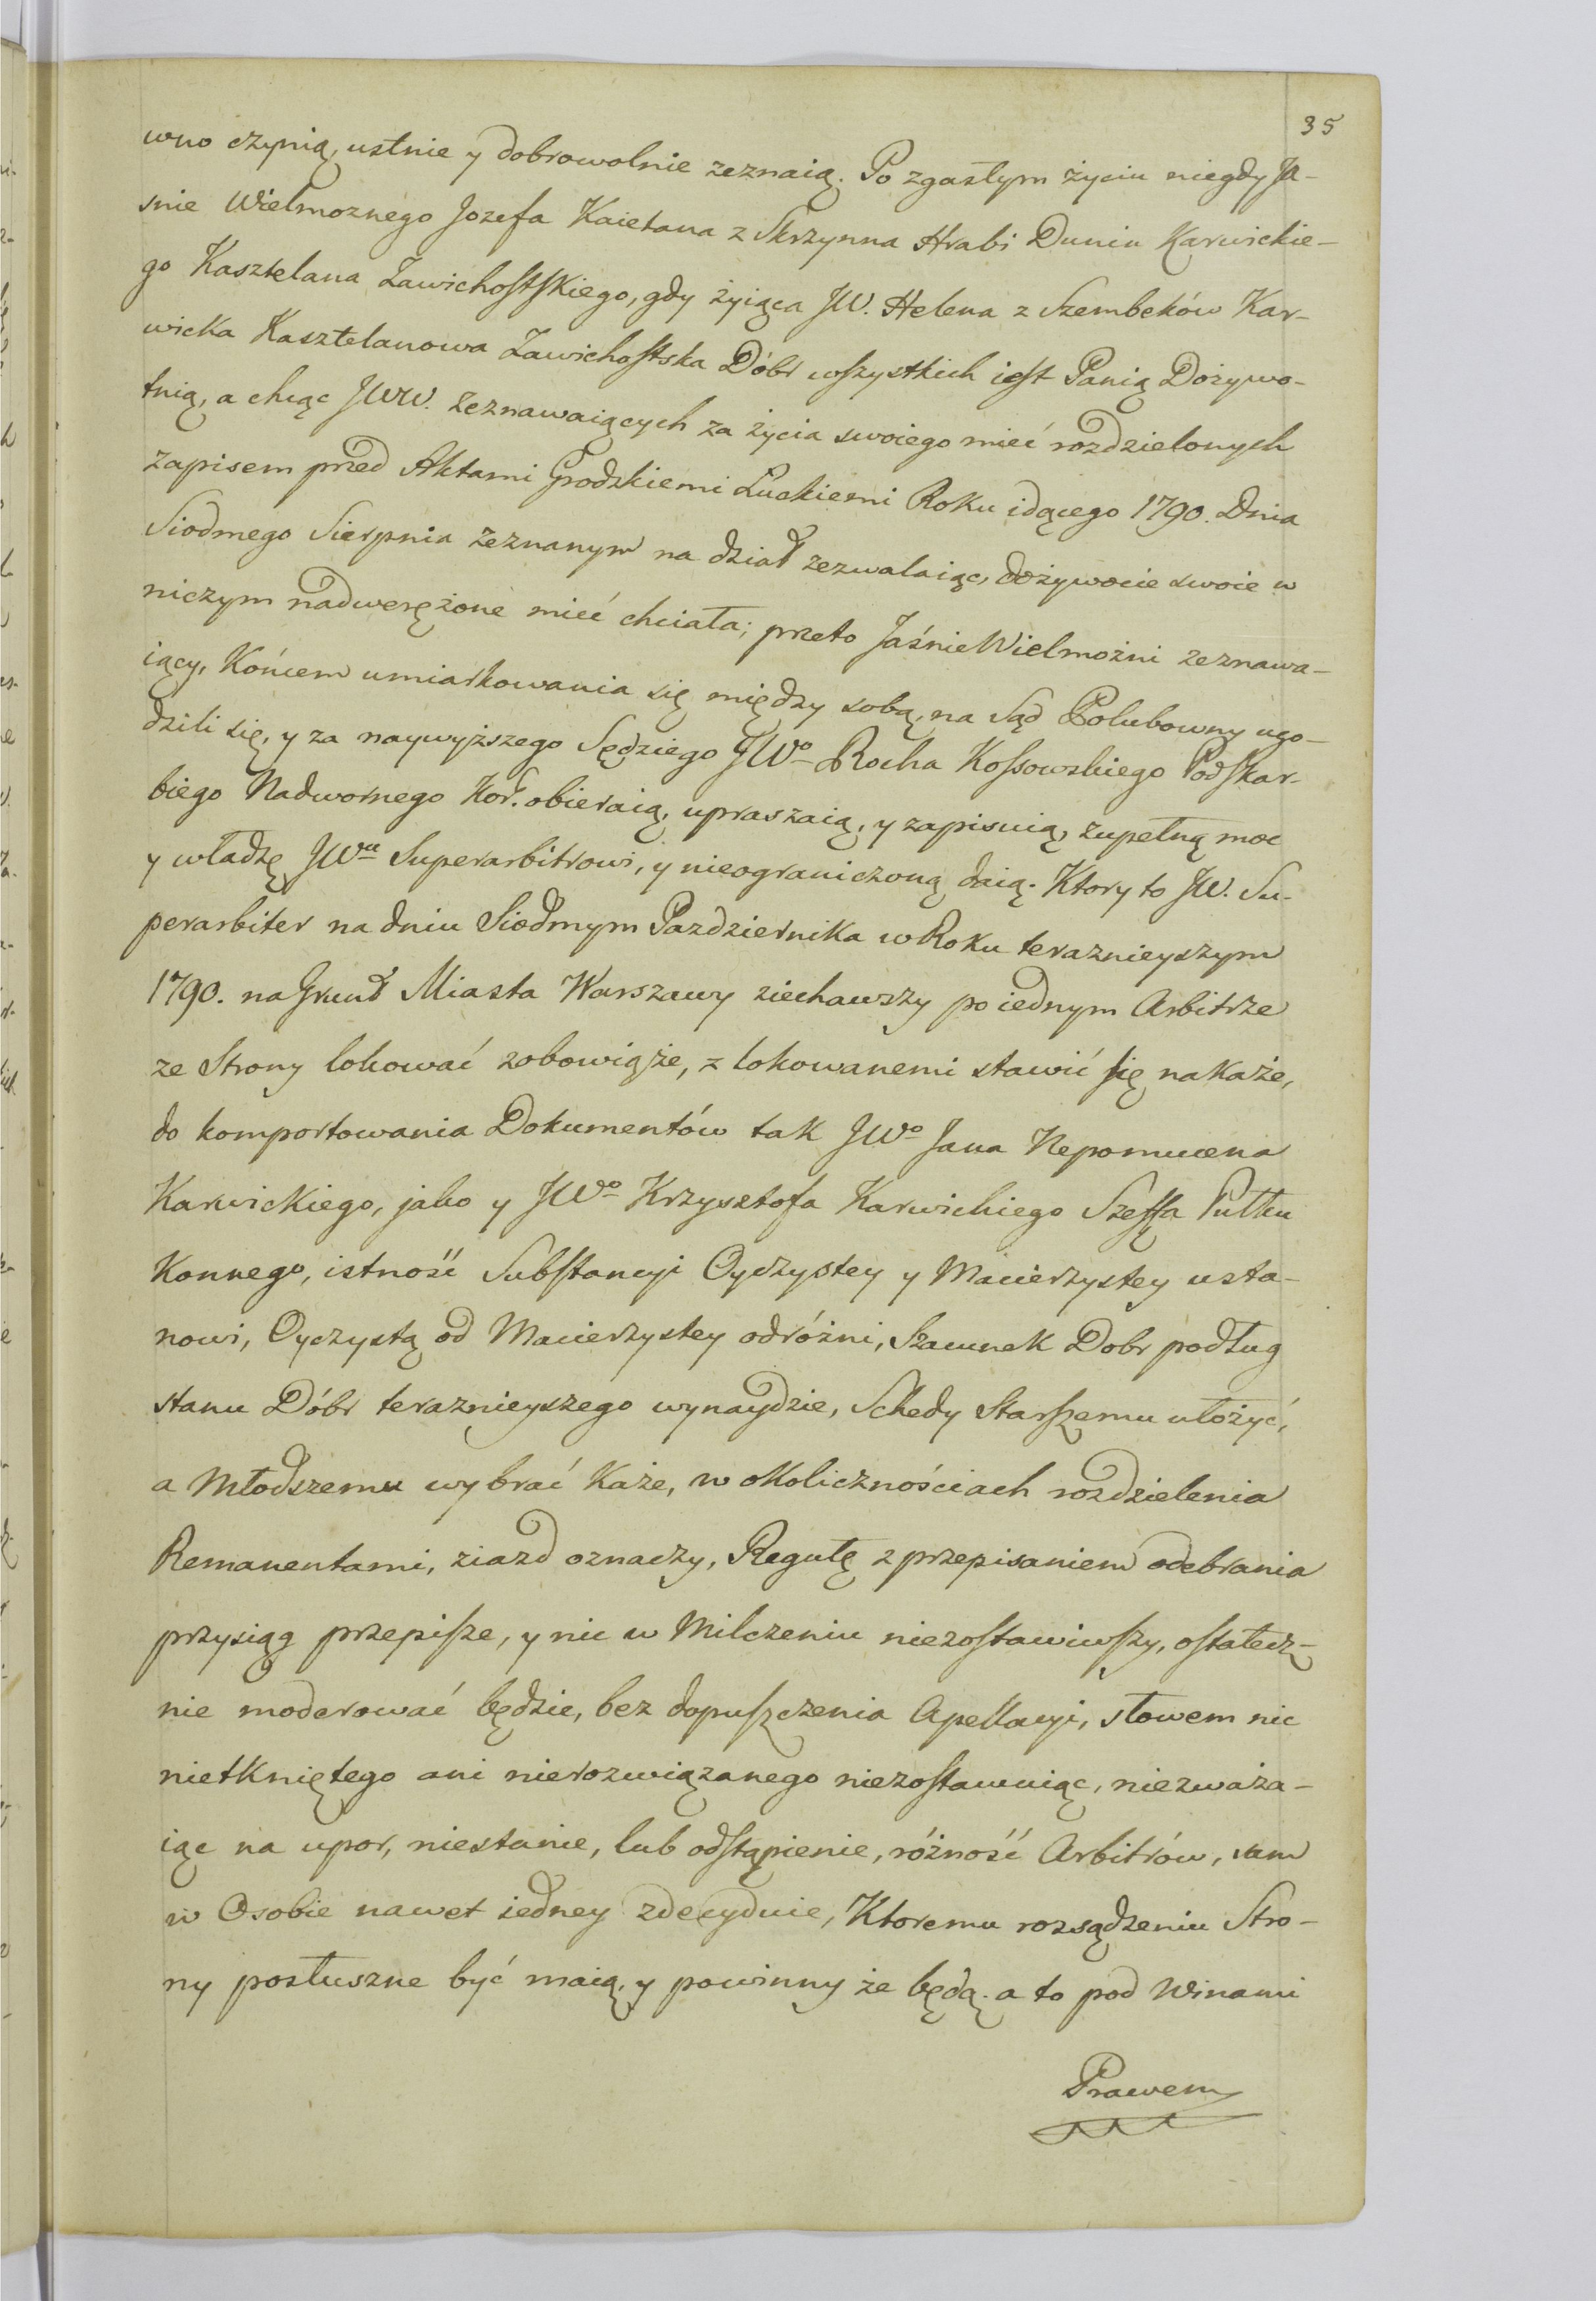 35
wno czynią, ustnie y dobrowolnie zeznaią. Po zgasłym życiu niegdy Ja-
snie Wielmoznego Jozefa Kaietana z Skrzynna Hrabi Dunin Karwickie-
go Kasztelana Zawichostskiego, gdy żyiąca JW. Helena z Szembeków Kar-
wicka Kasztelanowa Zawichostska Dóbr wszystkich iest Panią Dożywo-
tnią, a chcąc JWW. zeznawaiących za życia swoiego mieć rozdzielonych
zapisem przed Aktami Grodzkiemi Łuckiemi Roku idącego 1790. Dnia
Siodmego Sierpnia zeznanym na dział zezwalaiąc, dożywocie swoie w
niczym nadwerężone mieć chciała; przeto Jaśnie Wielmożni zeznawa-
iący, Końcem umiarkowania się między sobą, na Sąd Polubowny ugo-
dzili się, y za naywyższego Sędziego JWo Rocha Kossowskiego Podskar-
biego Nadwornego Kor. obieraią, upraszaią, y zapisuią, zupełną moc
y władzę JWu Superarbitrowi, y nieograniczoną daią. Ktory to JW. Su-
perarbiter na dniu Siodmym Pazdziernika w Roku teraznieyszym
1790. na Grunt Miasta Warszawy ziechawszy po iednym Arbitrze
ze Strony lokować zobowiąże, z lokowanemi stawić się nakaże,
do komportowania Dokumentów tak JWo Jana Nepomucena
Karwickiego, jako y JWo Krzysztofa Karwickiego Szeffa Pułku
Konnego, istność Substancyi Oyczystey y Macierzystey usta-
nowi, Oyczystą od Macierzystey odróżni, Szacunek Dobr podług
stanu Dóbr teraznieyszego wynaydzie, Schedy Starszemu ułożyć,
a Młodszemu wybrać każe, w okolicznościach rozdzielenia
Remanentami, ziazd oznaczy, Regułę z przepisaniem odebrania
przysiąg przepisze, y nic w Milczeniu niezostawiwszy, ostatecz-
nie moderować będzie, bez dopuszczenia Apellacyi, słowem nic
nietkniętego ani nierozwiązanego niezostawuiąc, niezważa-
iąc na upor, niestanie, lub odstąpienie, różność Arbitrów, sam
w Osobie nawet iedney zdecyduie, Ktoremu rozsądzeniu Stro-
ny posłuszne być maią, y powinny że będą. a to pod Winami
Prawem